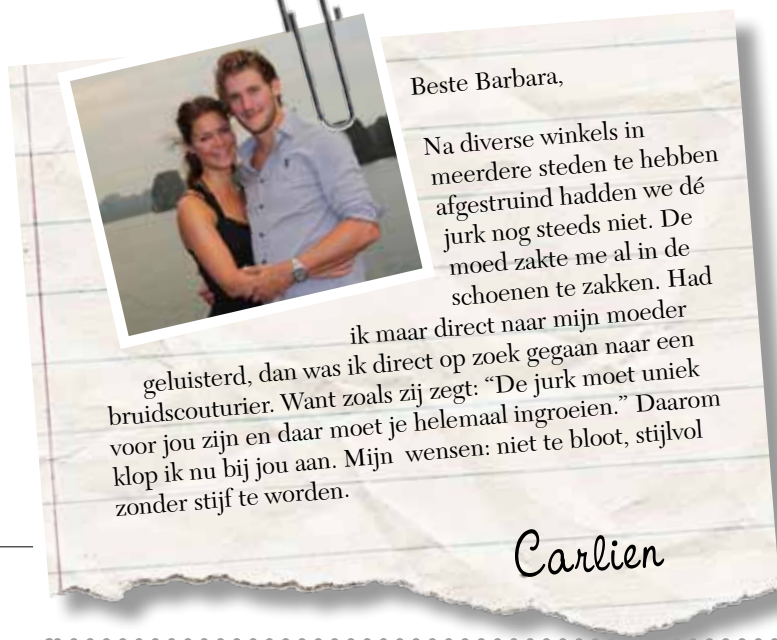 Beste Barbara,
Na diverse winkels in
meerdere steden te hebben
afgestruind hadden we dé
jurk nog steeds niet. De
moed zakte me al in de
schoenen te zakken. Had
ik maar direct naar mijn moeder
geluisterd, dan was ik direct op zoek gegaan naar een
bruidscouturier. Want zoals zij zegt: “De jurk moet uniek
voor jou zijn en daar moet je helemaal ingroeien.” Daarom
klop ik nu bij jou aan. Mijn wensen: niet te bloot, stijlvol
zonder stijf te worden.
Carlien